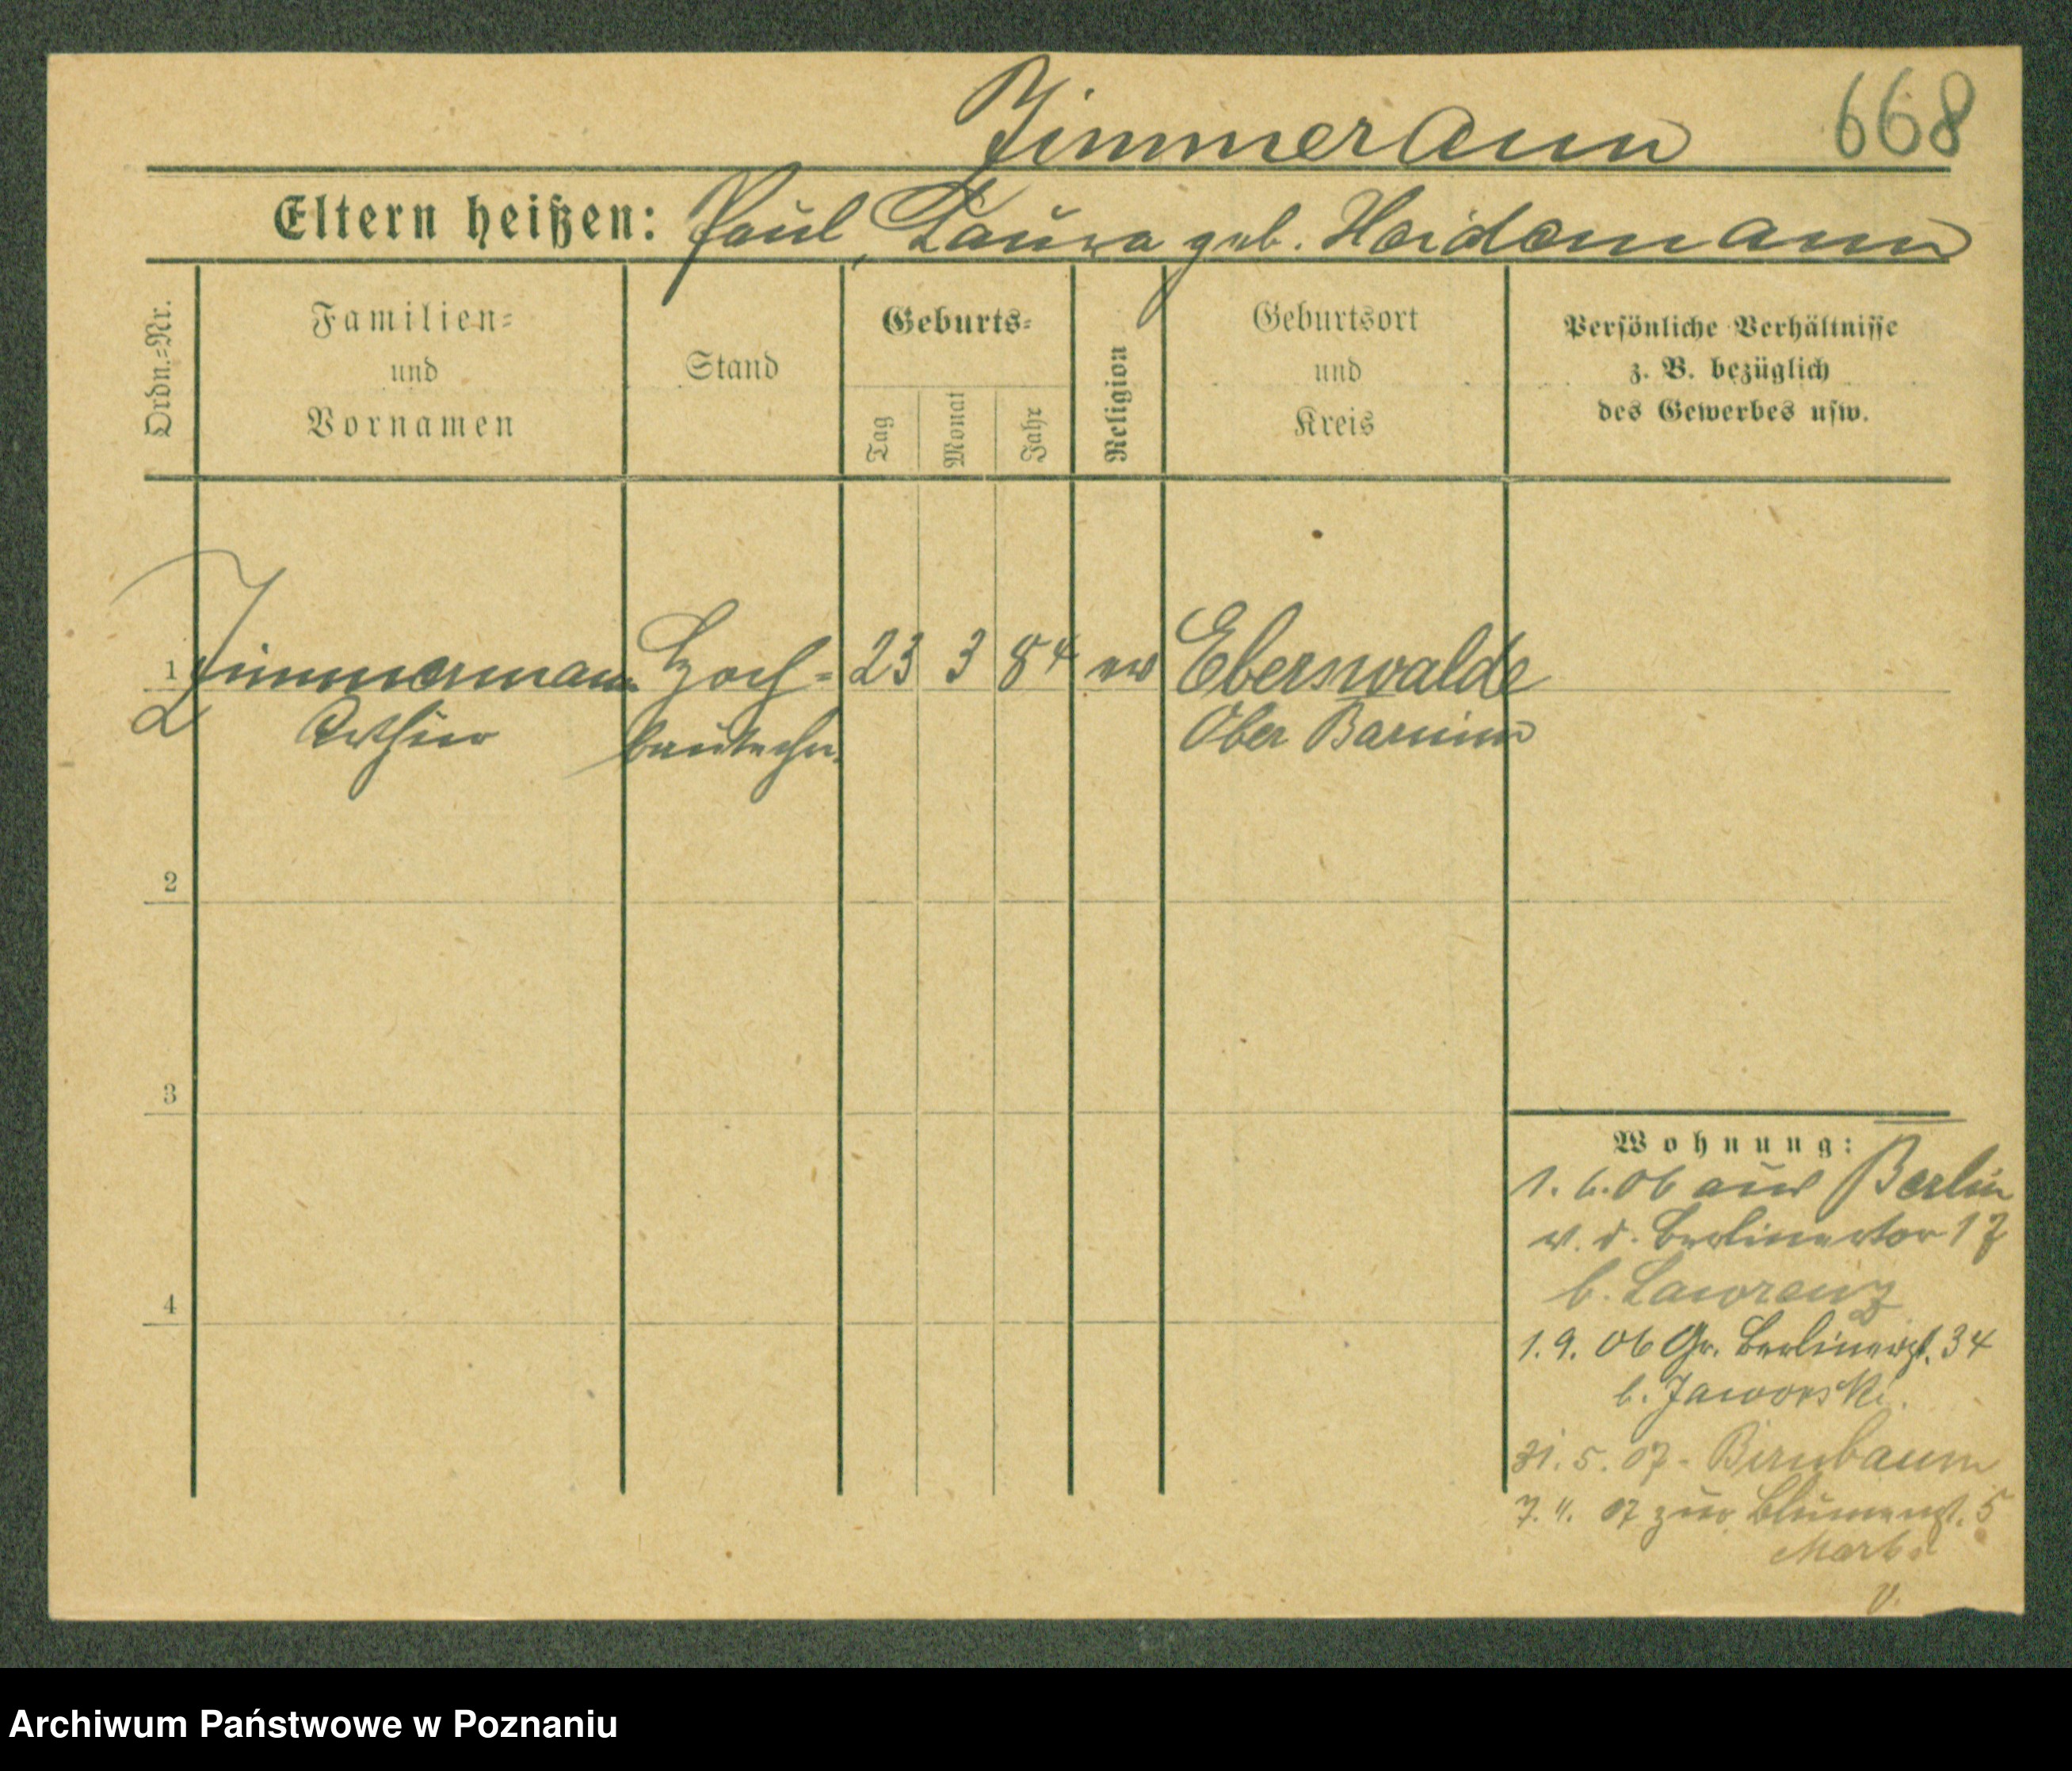 Zimmerann
668
Eltern heißen: Paul, Laura geb. Heidemann
Ordn.=Nr.
Familien=
und
Vornamen
Stand
Geburts=
Tag
Monat
Jahr
Religion
Geburtsort
und
Kreis
Persönliche Verhältnisse
z. B. bezüglich
des Gewerbes usw.
1 Zimmermann Hoch= 23 3 84 ev Eberswalde
Arthur bautechn. Ober Barnim
2
3
4
Wohnung:
1. 6. 06 aus Berlin
v. d. Berlinertor 17
b. Lawrenz
1. 9. 06 Gr. Berlinerst. 34
b. Jaworski.
31. 5. 07 - Birnbaum
7. 11. 07 zur. Blumenst. 5
v.
Archiwum Państwowe w Poznaniu